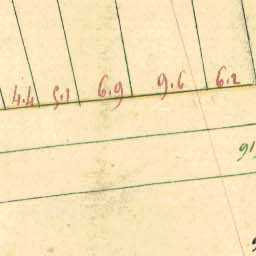 4.4 5.1 6.9 9.6 6.2